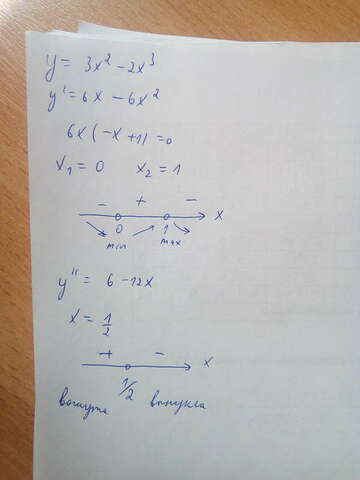 y = 3x² − 2x³
y' = 6x − 6x²
6x(−x + 1) = 0
x₁ = 0 x₂ = 1
− + −
0 1 x
min max
y'' = 6 − 12x
x = 1/2
+ −
1/2 x
вогнута выпукла